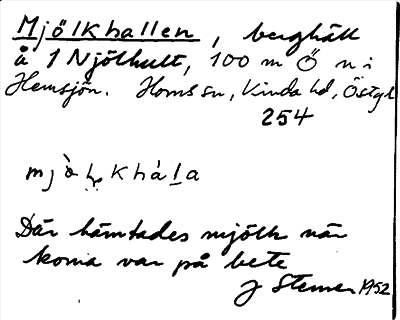 Mjölkhallen, berghäll
å 1 Njölhult, 100 m Ö n i
Hemsjön. Horns sn, Kinda hd, Östgl
254
mjòl̥kháḷa
Där hämtades mjölk när
korna var på bete
J Stener 1952